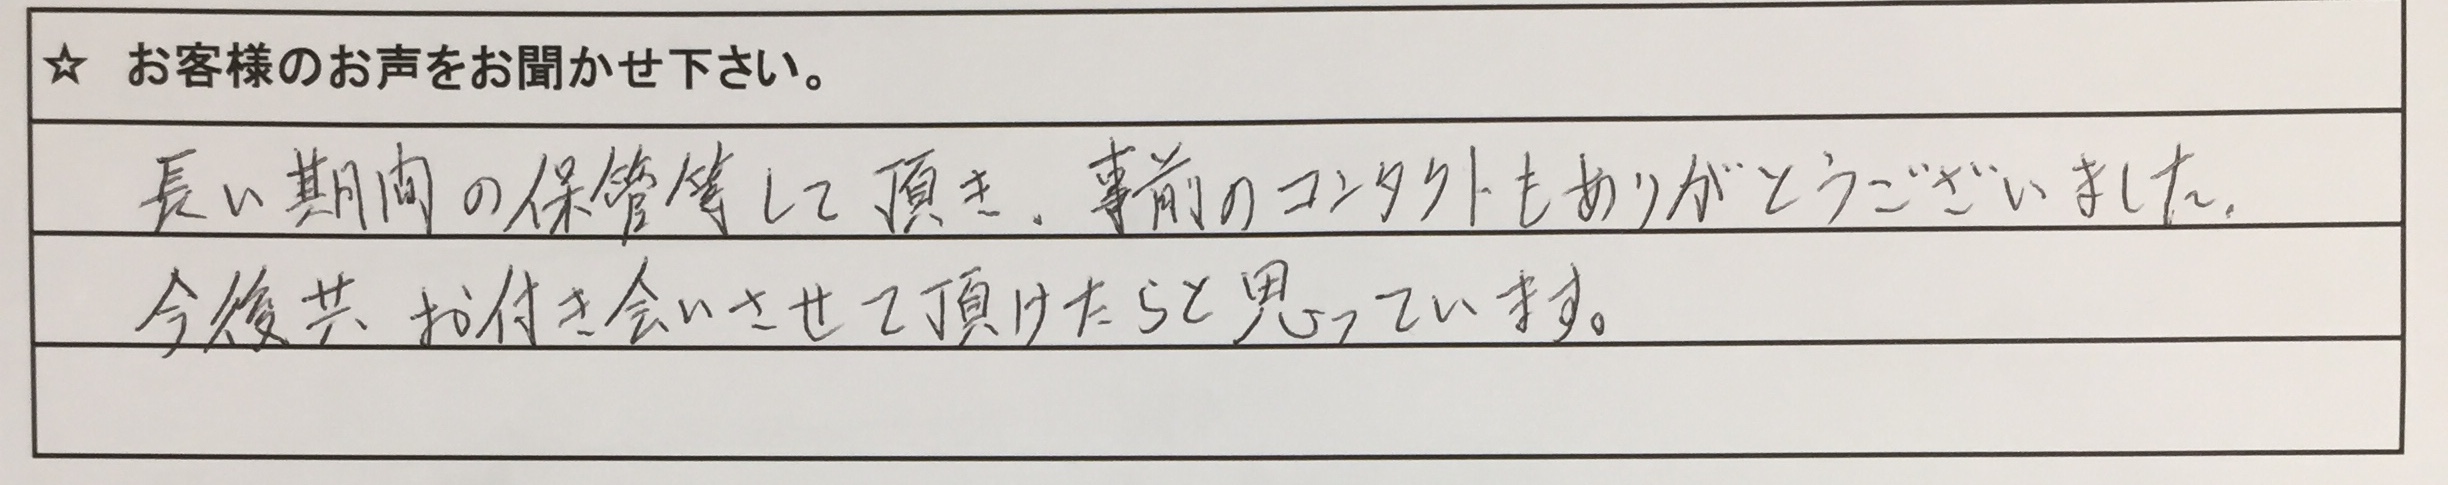 ☆ お客様のお声をお聞かせ下さい。
長い期間の保管等して頂き、事前のコンタクトもありがとうございました。
今後共お付き会いさせて頂けたらと思っています。